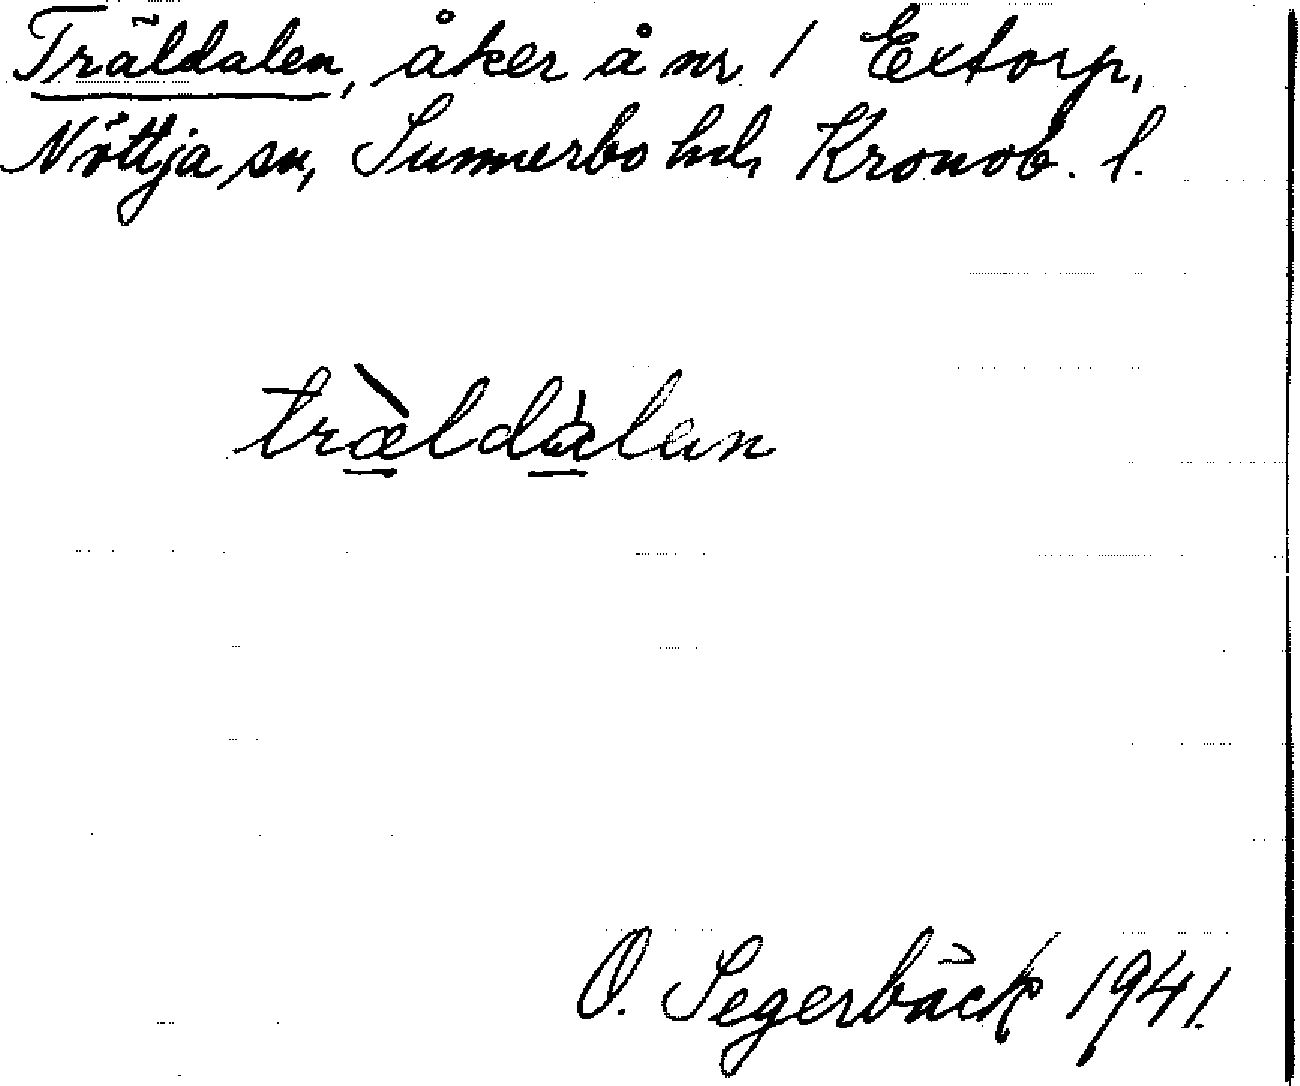 Träldalen, åker å nr 1 Extorp,
Nöttja sn, Sunnerbo hd, Kronob. l.
træ̀ldàlen
O. Segerbäck 1941.